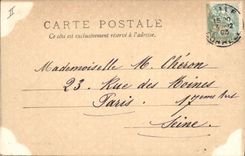 CARTE POSTALE
Ce côté est exclusivement réservé à l'adresse.
Mademoiselle M. Chéron
23. Rue des Moines
Paris 17eme Arrt
Seine